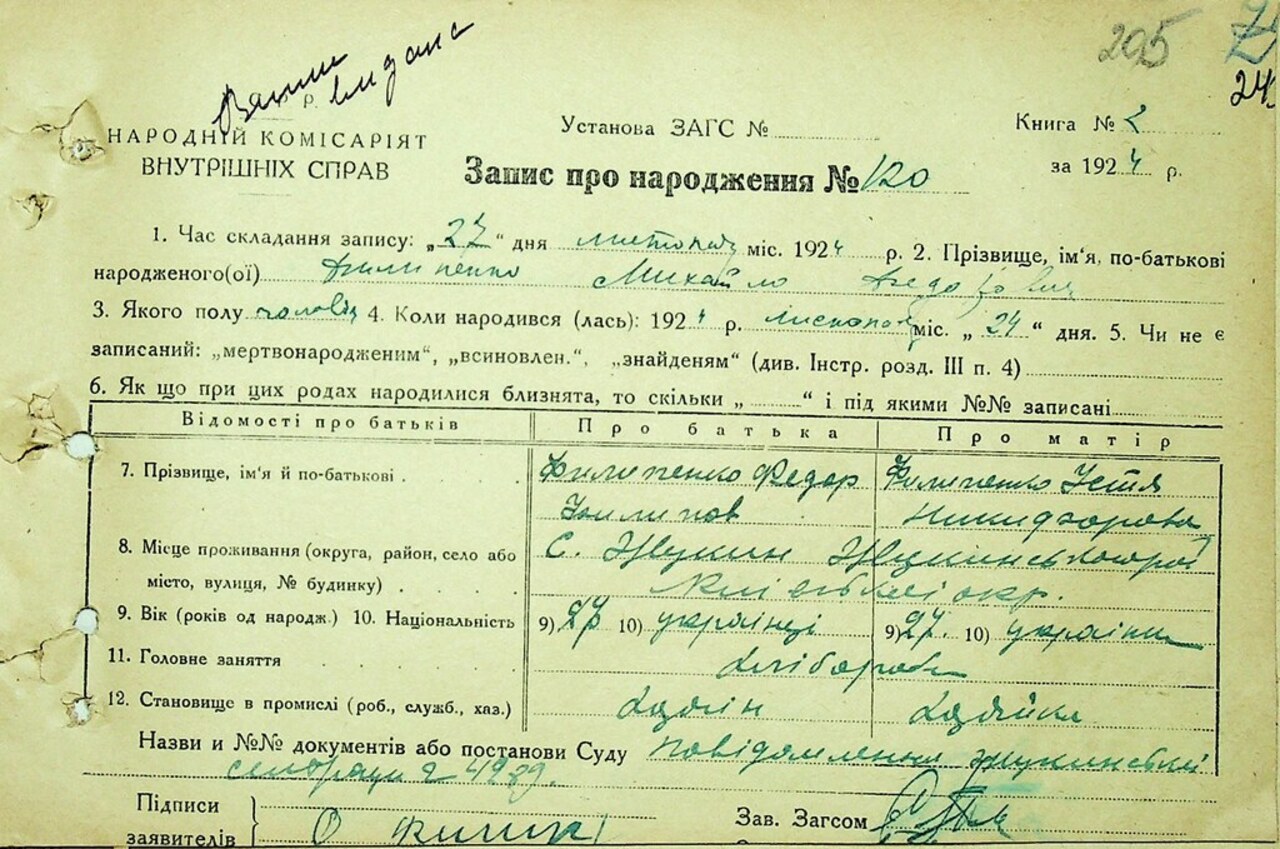 205
24
видана
НАРОДНІЙ КОМІСАРІЯТ
ВНУТРІШНІХ СПРАВ
Установа ЗАГС №
Книга № 2
за 1924 р.
Запис про народження № 120
1. Час складання запису: „27“ дня листопад міс. 1924 р. 2. Прізвище, ім'я, по-батькові
народженого(ої) Филипенко Михайло Федорович
3. Якого полу чоловіч 4. Коли народився (лась): 1924 р. листопад міс. „24“ дня. 5. Чи не є
записаний: „мертвонародженим“, „всиновлен.“, „знайденям“ (див. Інстр. розд. III п. 4)
6. Як що при цих родах народилися близнята, то скільки „ “ і під якими №№ записані
Відомості про батьків Про батька Про матір
7. Прізвище, ім'я й по-батькові Филипенко Федор Филипенко Устя
Никифорова
8. Місце проживання (округа, район, село або С. Жукин Жукинського
місто, вулиця, № будинку) Київської окр.
9. Вік (років од народж.) 10. Національність 9) 10) українці 9) 27. 10) українка
11. Головне заняття хлібороби
12. Становище в промислі (роб., служб., хаз.) хазяїн хазяйка
Назви и №№ документів або постанови Суду Повідомлення жукинської
сельради
Підписи
заявителів
Зав. Загсом